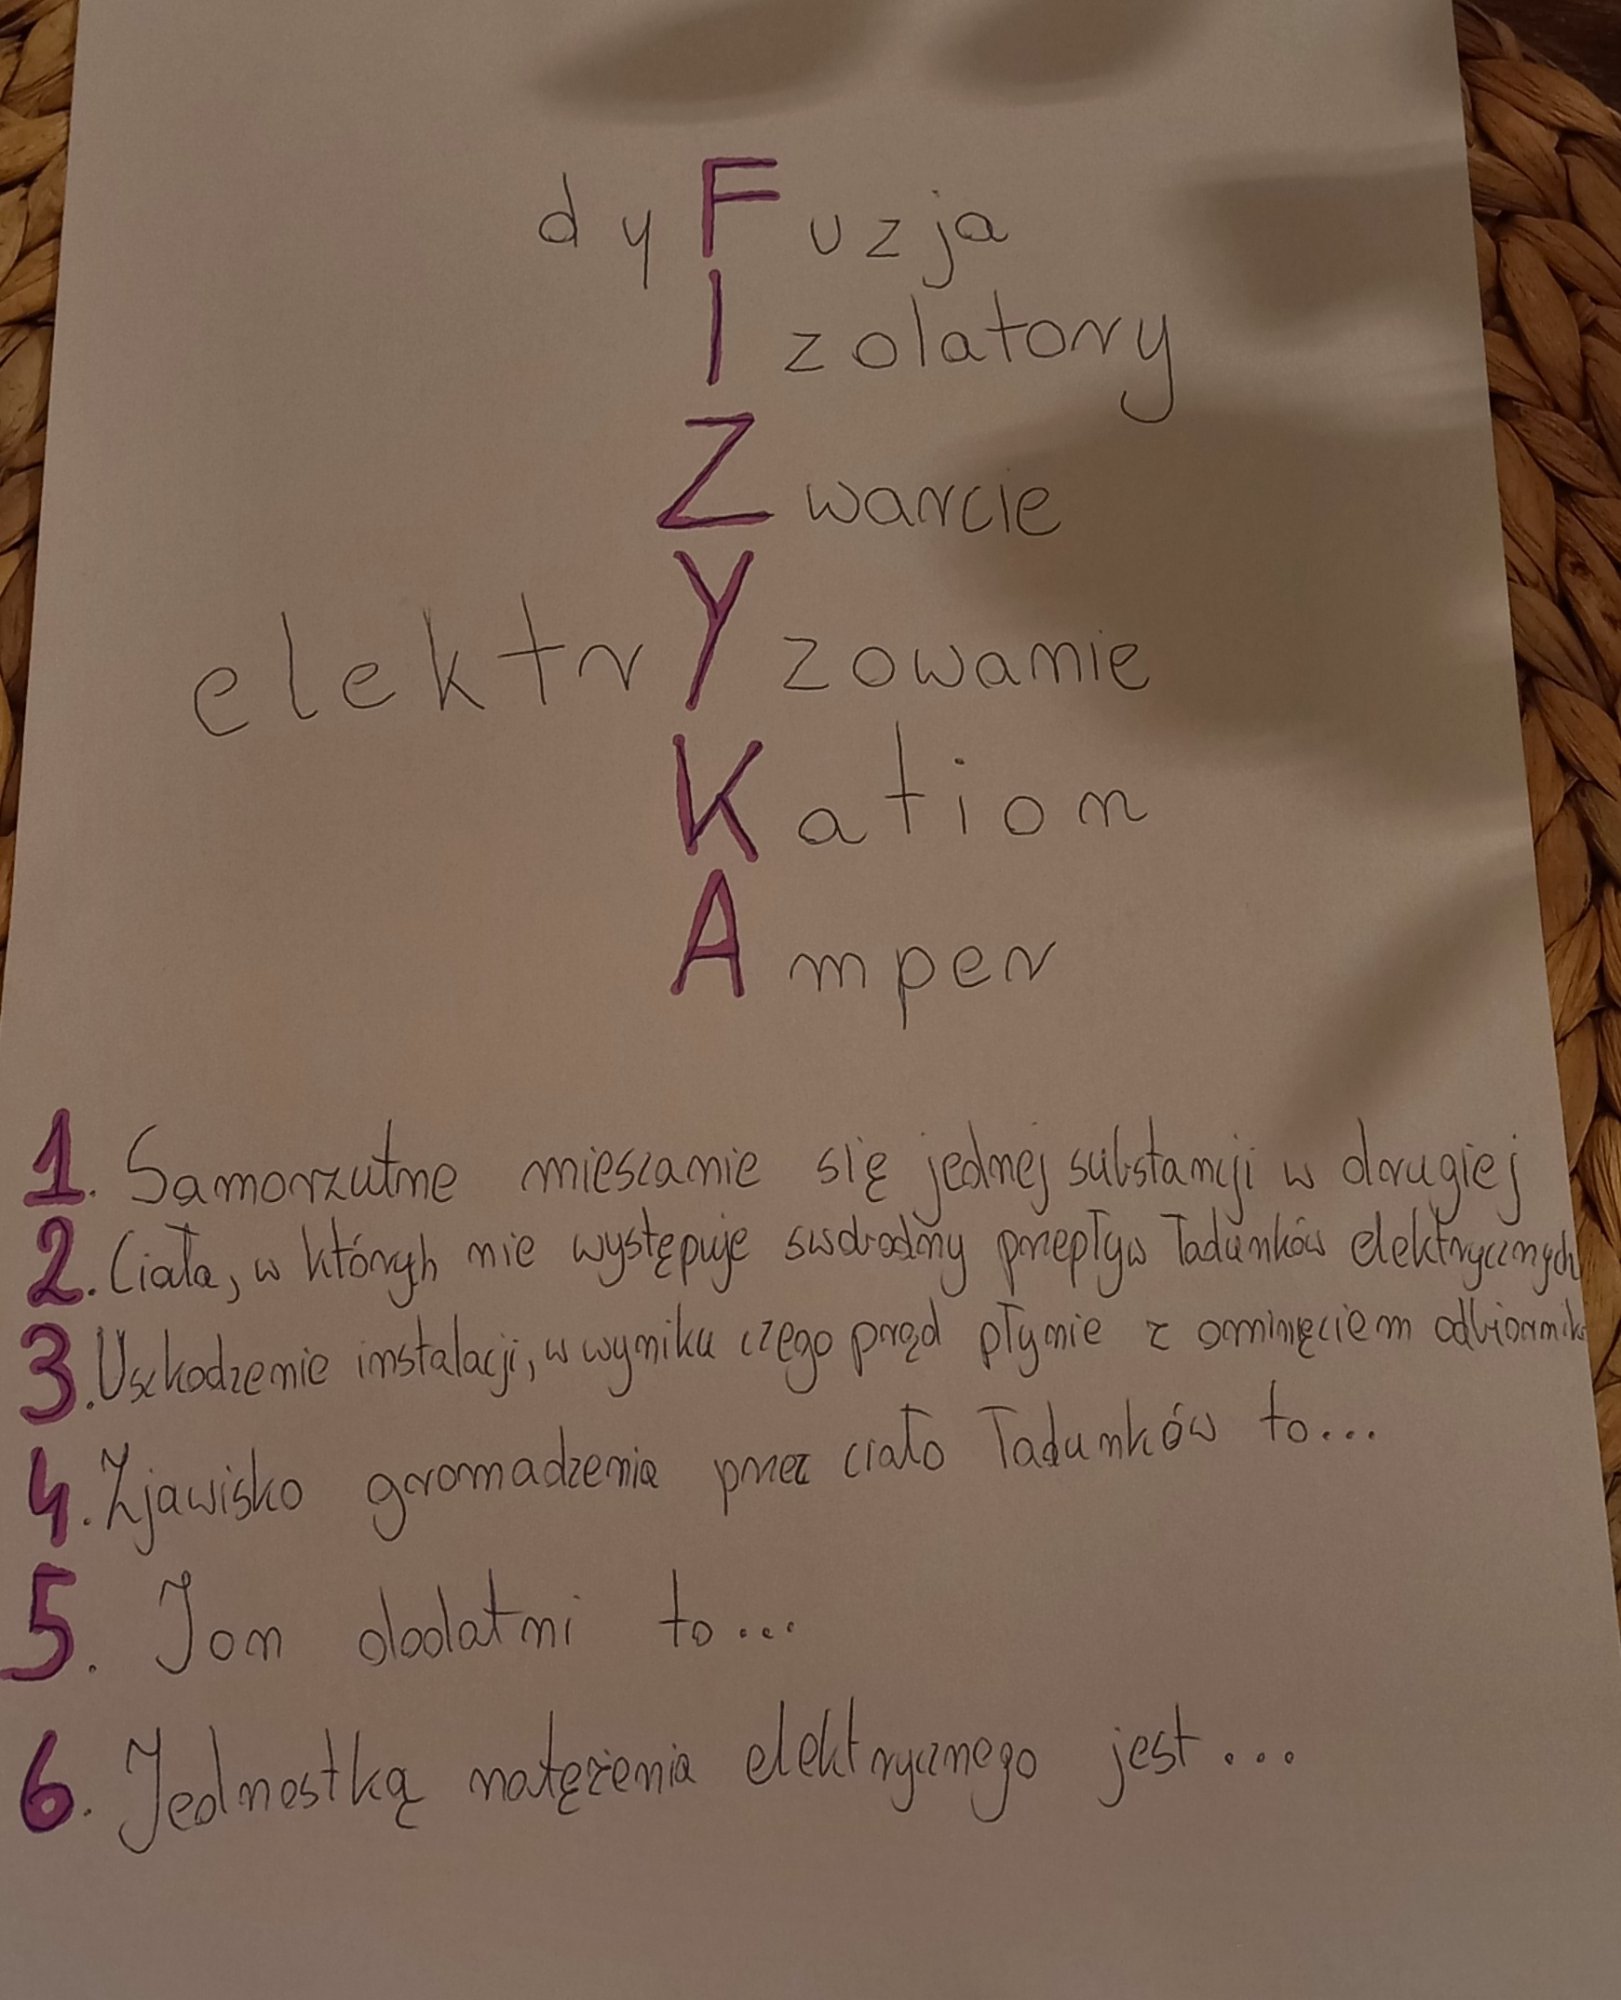 dyFuzja
Izolatory
Zwarcie
elektrYzowanie
Kation
Amper
1. Samorzutne mieszanie się jednej substancji w drugiej
2. Ciała, w których nie występuje swobodny przepływ ładunków elektrycznych
3. Uszkodzenie instalacji, w wyniku czego prąd płynie z ominięciem odbiornika
4. Zjawisko gromadzenia przez ciało ładunków to...
5. Jon dodatni to...
6. Jednostką natężenia elektrycznego jest...